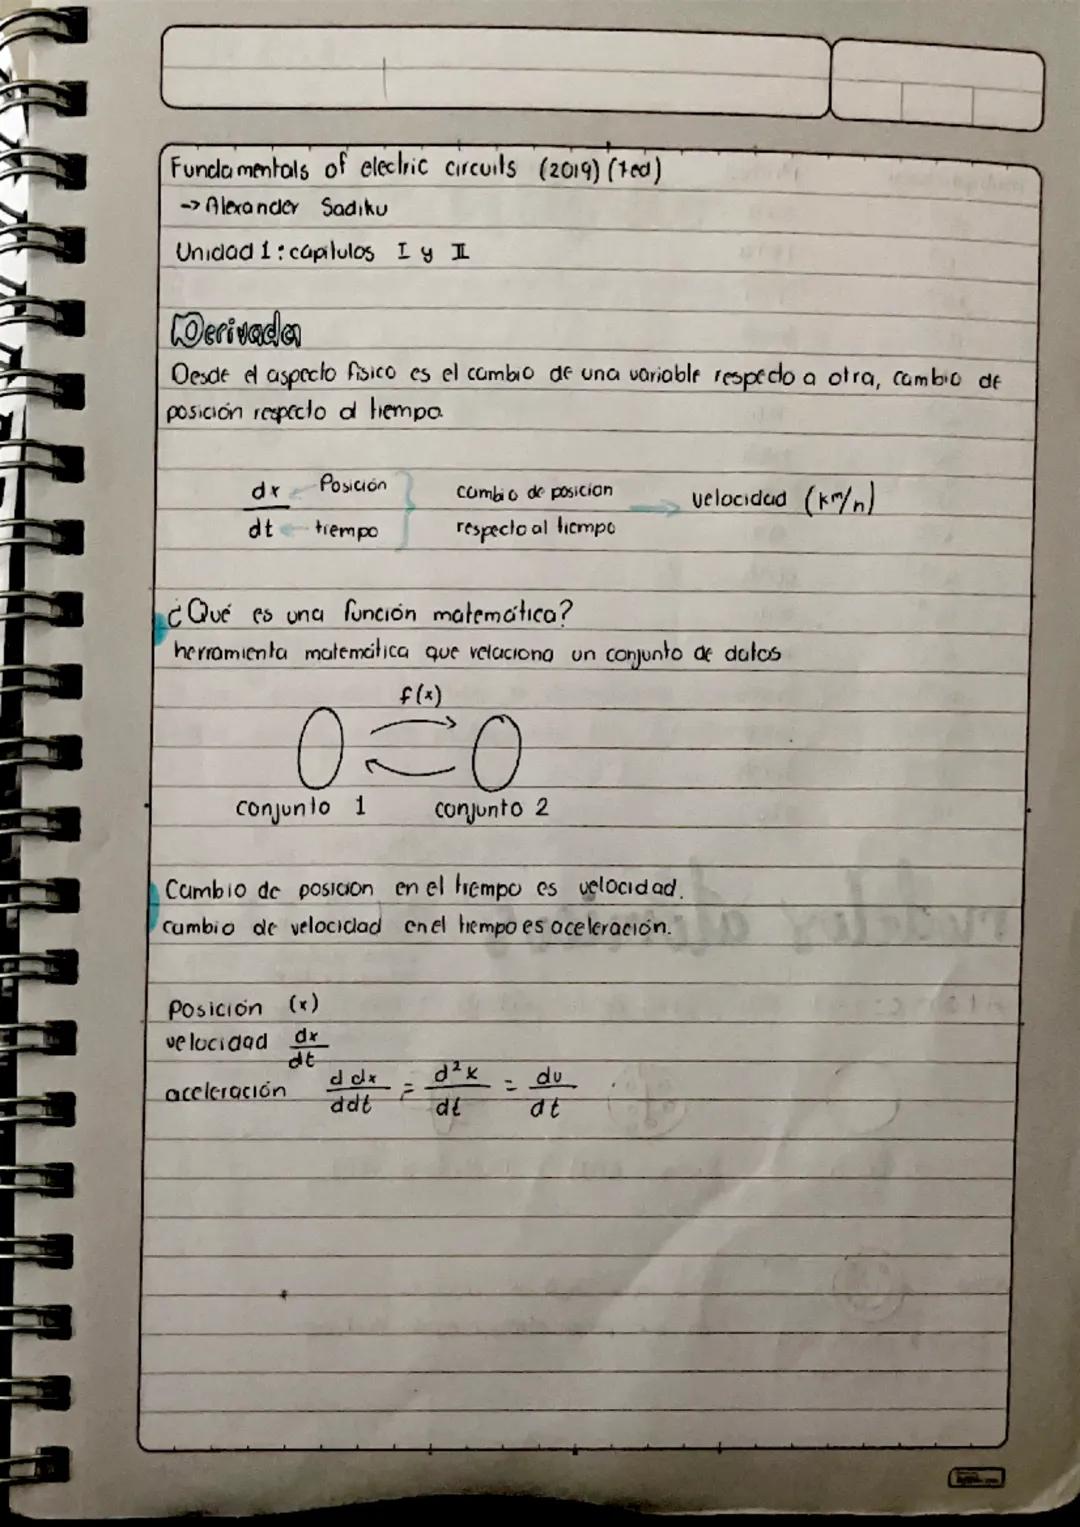 Fundamentals of electric circuits (2019) (7ed)
-> Alexander Sadiku
Unidad 1: capitulos I y II
Derivada
Desde el aspecto físico es el cambio de una variable respecto a otra, cambio de
posición respecto al tiempo.
dx Posición
dt tiempo
cambio de posicion
respecto al tiempo
velocidad (km/h)
¿Qué es una función matemática?
herramienta matemática que relaciona un conjunto de datos
f(x)
conjunto 1 conjunto 2
Cambio de posicion en el tiempo es velocidad.
cambio de velocidad en el tiempo es aceleración.
Posición (x)
velocidad dx/dt
aceleración d dx/ddt = d²x/dt = dv/dt